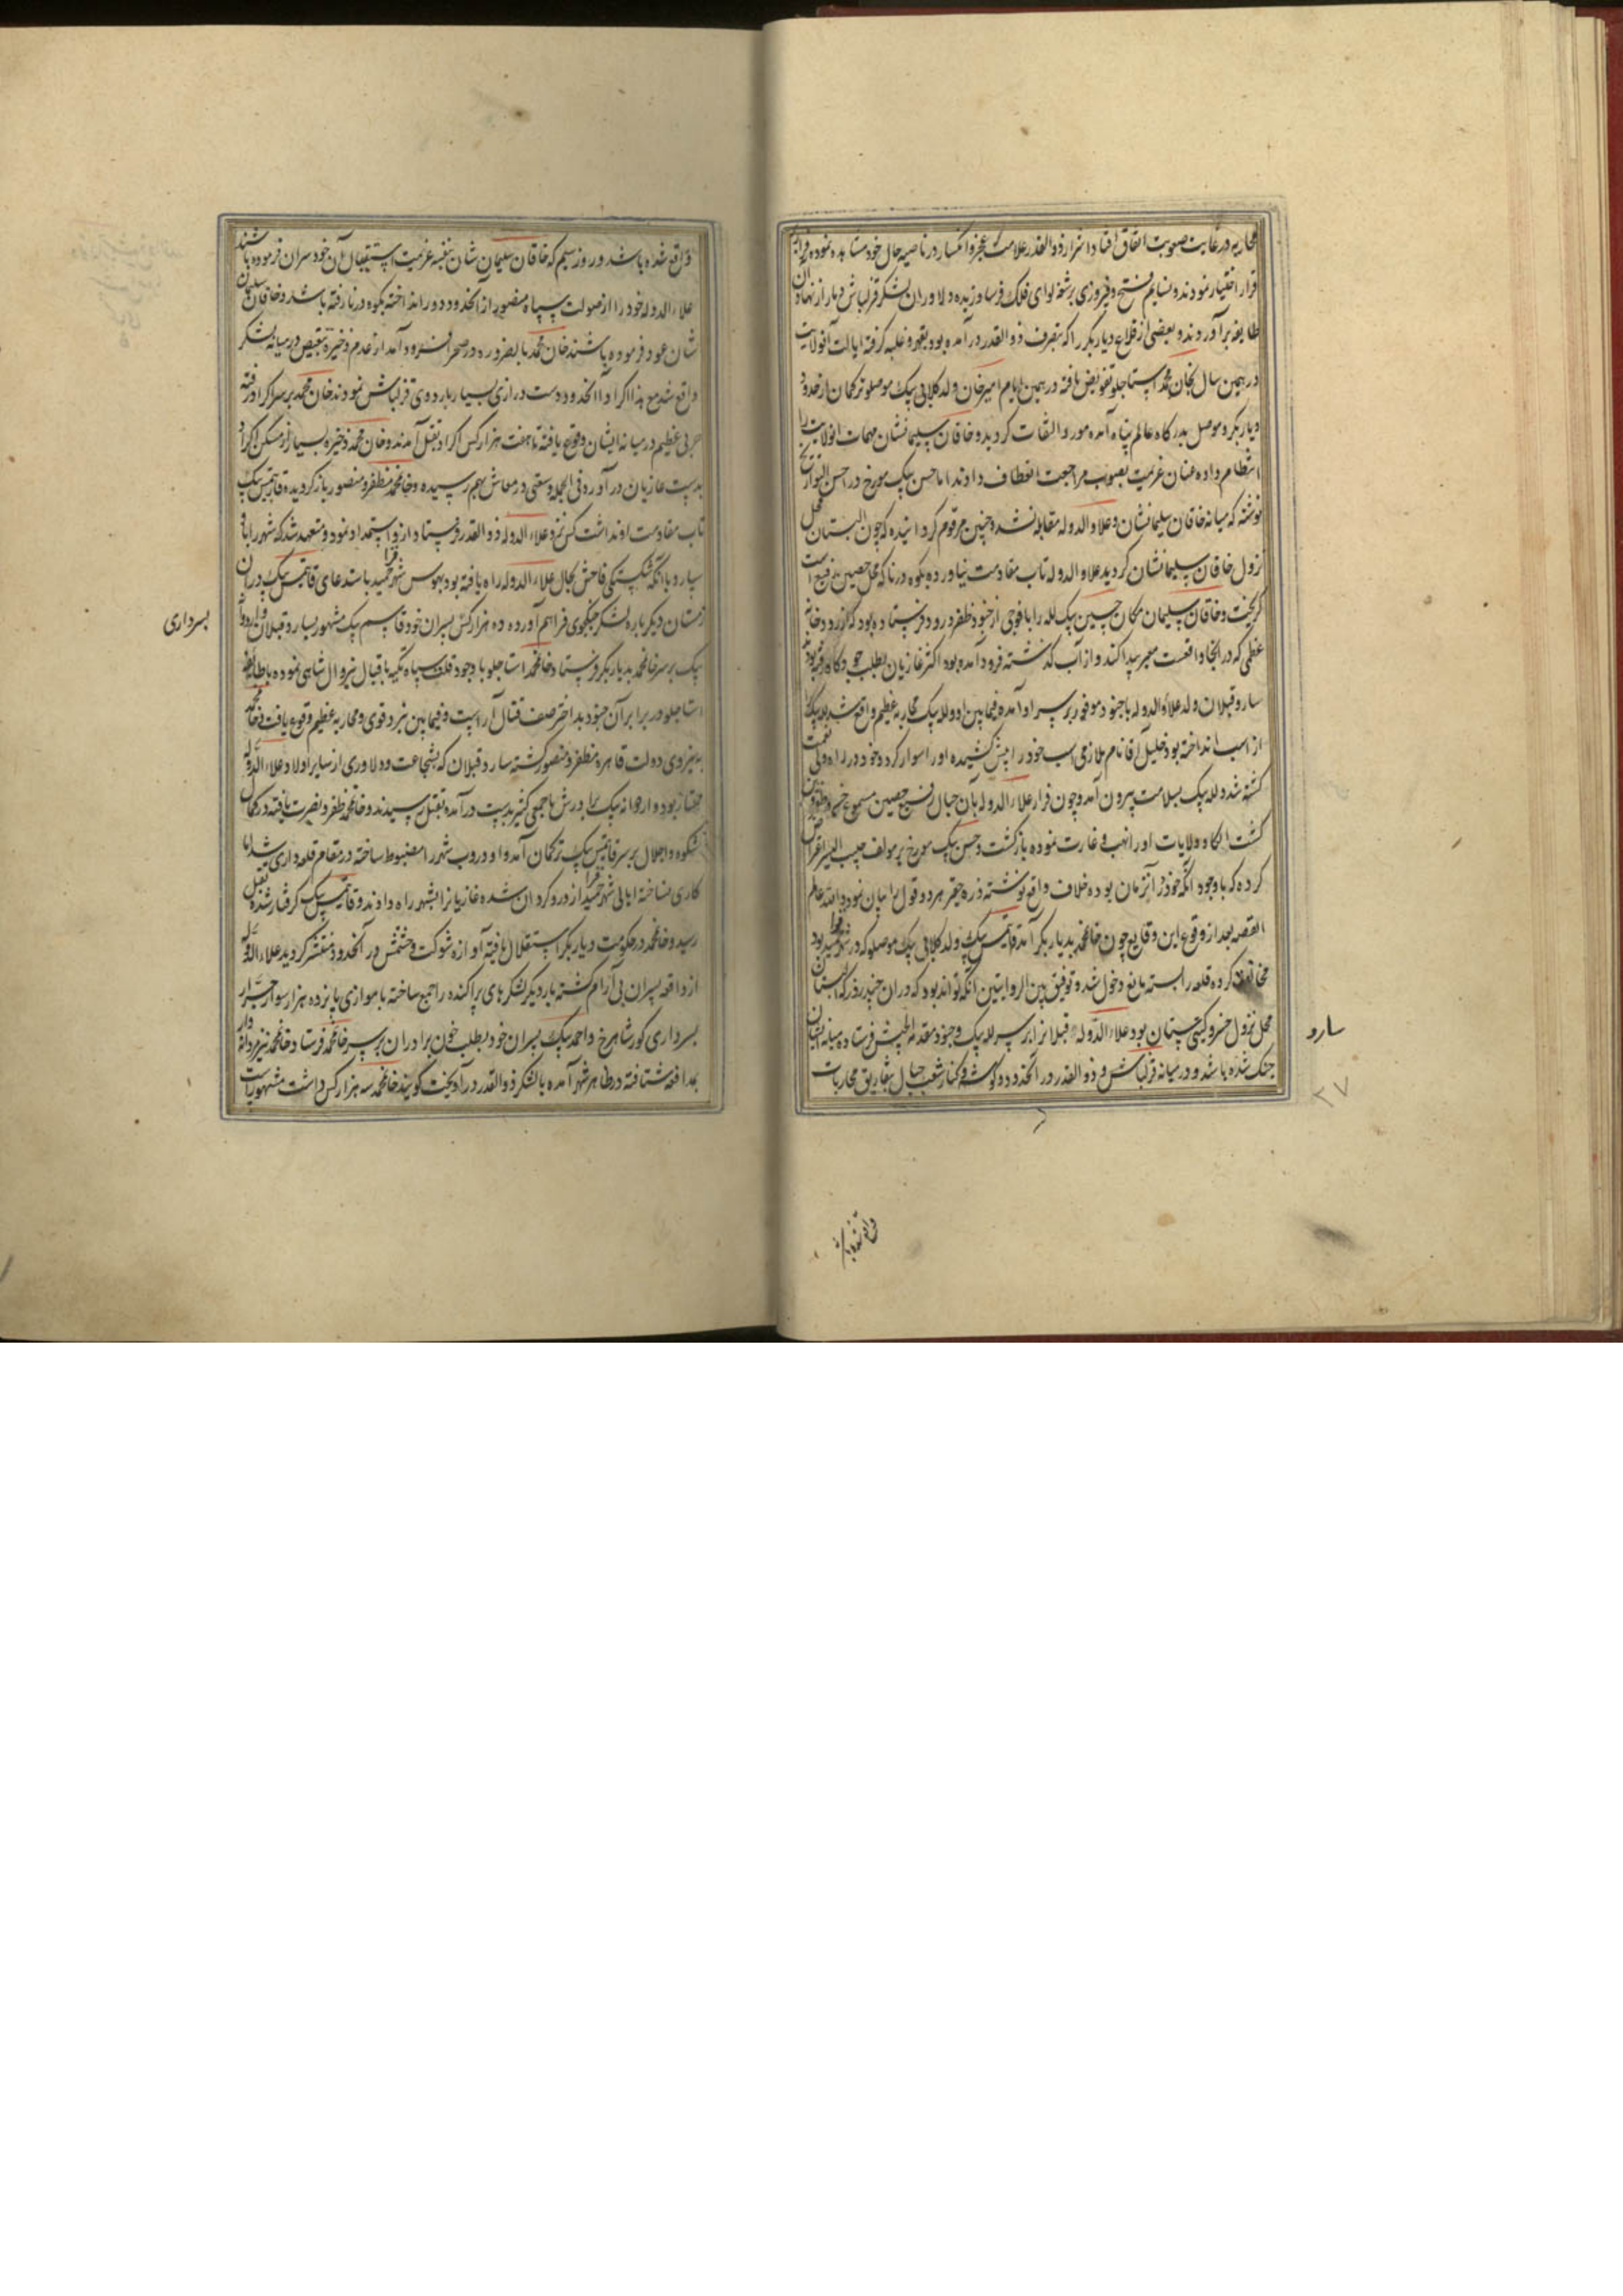 محاربه در غایت صعوبت اتفاق افتاد اشرار ذوالقدر علامت عجز و انکسار در ناصیه حال خود مشاهده نموده فرار بر
قرار اختیار نمودند و نسایم فتح و فیروزی بر شقه لوای فلک فرسا وزیده دلاوران لشکر قزلباش دمار از نهاد آن
طایفه برآوردند و بعضی از قلاع دیاربکر را که بتصرف ذوالقدر درآمده بود بقهر و غلبه گرفته ایالت آنولایت
در همین سال بخان محمد استاجلو تفویض یافته در همین ایام امیرخان ولد کلابی بیک موصلو ترکمان از حدود
دیاربکر و موصل بدرگاه عالم پناه آمده مورد التفات گردید و خاقان سلیمانشان مهمات آنولایت را
انتظام داده عنان عزیمت بصوب مراجعت انعطاف دادند اما حسن بیک مورخ در احسن التواریخ
نوشته که میانه خاقان سلیمانشان و علاء الدوله مقابله نشد و چنین مرقوم گردانیده که چون البستان محل
نزول خاقان سلیمانشان گردید علاء الدوله تاب مقاومت نیاورده بکوه درنا که محل حصین رفیع است
گریخت و خاقان سلیمان مکان حسین بیک لله را با فوجی از جنود ظفر ورود فرستاده بود که از رودخانه
عظمی که در آنجا واقعست معبر پیدا کند و از آب گذشته فرود آمده بود اکثر غازیان بطلب جو و کاه رفته بودند
سارو قبلان ولد علاء الدوله با جنود موفور بر سر او آمده فیمابین او و لله بیک محاربه عظیم واقع شد لله بیک
از اسب انداخته بود خلیل آقا نام ملازمی اسب خود را پیش کشیده او را سوار کرد و خود در راه ولی نعمت
کشته شد و لله بیک بسلامت بیرون آمد و چون فرار علاء الدوله بآن جبال رفیع حصین مسموع خسرو ظفر قرین
گشت الکا و ولایات او را نهب و غارت نموده بازگشت و حسن بیک مورخ بر مولف حبیب السیر اعتراض
کرده که با وجود آنکه خود در آنزمان بوده خلاف واقع نوشته ذره حقیر هر دو قول را بیان نمود والله اعلم
القصه بعد از وقوع این وقایع چون خانمحمد بدیاربکر آمد قایتمس بیک ولد کلابی بیک موصلو که در شهر قراحمید بود
مخالفت کرده قلعه را بسته مانع دخول شد و توفیق بین الروایتین آنکه تواند بود که در آن چند روز که البستان
محل نزول خسرو گیتی ستان بود علاء الدوله قبلانرا بر سر لله بیک و جنود مقدمه الجیش فرستاده میانه ایشان
جنک شده باشد و در میانه قزلباش و ذوالقدر در آنحدود و گوشه و کنار شعب جبال بتفاریق محاربات
سارو
۲۷
واقع شده باشد و روز سیم که خاقان سلیمان شان بنفسه عزیمت استیصال آن خودسران فرموده باشند
علاء الدوله خود را از صولت سپاه منصور از آنحدود دور انداخته بکوه درنا رفته باشد و خاقان سلیمان
شان عود فرموده باشند خان محمد بالضروره در صحرا فرود آمد از عدم ذخیره تنقیص در میانه لشکر
واقع شد مع هذا اکراد آنحدود دست درازی بسیار باردوی قزلباش نمودند خان محمد بر سر اکراد رفته
حربی عظیم در میانه ایشان وقوع یافته تا هفت هزار کس اکراد بقتل آمدند و خان محمد ذخیره بسیار از مسکن اکراد
بدست غازیان درآورد فی الجمله وسعتی در معاش بهم رسیده و خانمحمد مظفر و منصور بازگردیده قایتمس بیک
تاب مقاومت او نداشت کس نزد علاء الدوله ذوالقدر فرستاد از او استمداد نمود و متعهد شد که شهر را باو
سپارد با آنکه شکستگی فاحش بحال علاء الدوله راه یافته بود بهوس شهر قراحمید باستدعای قایتمس بیک در آن
زمستان دیگر باره لشکر جنگجوی فراهم آورده ده هزار کس بسران خود قاسم بیک مشهور بسارو قبلان و اردوانه
بیک بر سر خانمحمد بدیاربکر فرستاد خانمحمد استاجلو با وجود قلت سپاه تکیه باقبال بیزوال شاهی نموده با طایفه
استاجلو در برابر آن جنود بداختر صف قتال آراست و فیمابین نبرد قوی و محاربه عظیم وقوع یافت خانمحمد
به نیروی دولت قاهره مظفر و منصور گشته سارو قبلان که بشجاعت و دلاوری از سایر اولاد علاء الدوله
ممتاز بود و اردوانه بیک برادرش با جمعی کثیر بدست درآمده بقتل رسیدند و خانمحمد ظفر و نصرت یافته در کمال
شکوه و اجلال بر سر قایتمس بیک ترکمان آمد و او دروب شهر را مضبوط ساخته در مقام قلعه داری شد اما
کاری نساخته اهالی شهر قراحمید از او رو گردان شده غازیانرا بشهر راه دادند و قایتمس بیک گرفتار شده بقتل
رسید و خانمحمد در حکومت دیاربکر استقلال یافته آوازه شوکت و حشمتش در آنحدود منتشر گردید علاء الدوله
از واقعه پسران بی آرام گشته بار دیگر لشکرهای پراکنده را جمع ساخته با موازی پانزده هزار سوار جرار
بسرداری کور شاهرخ و احمد بیک پسران خود بطلب خون برادران بر سر خانمحمد فرستاد خانمحمد نیز مردانه وار
بمدافعه شتافته در ظاهر شهر آمده با لشکر ذوالقدر درآویخت گویند خانمحمد سه هزار کس داشت مشهور است
بسرداری